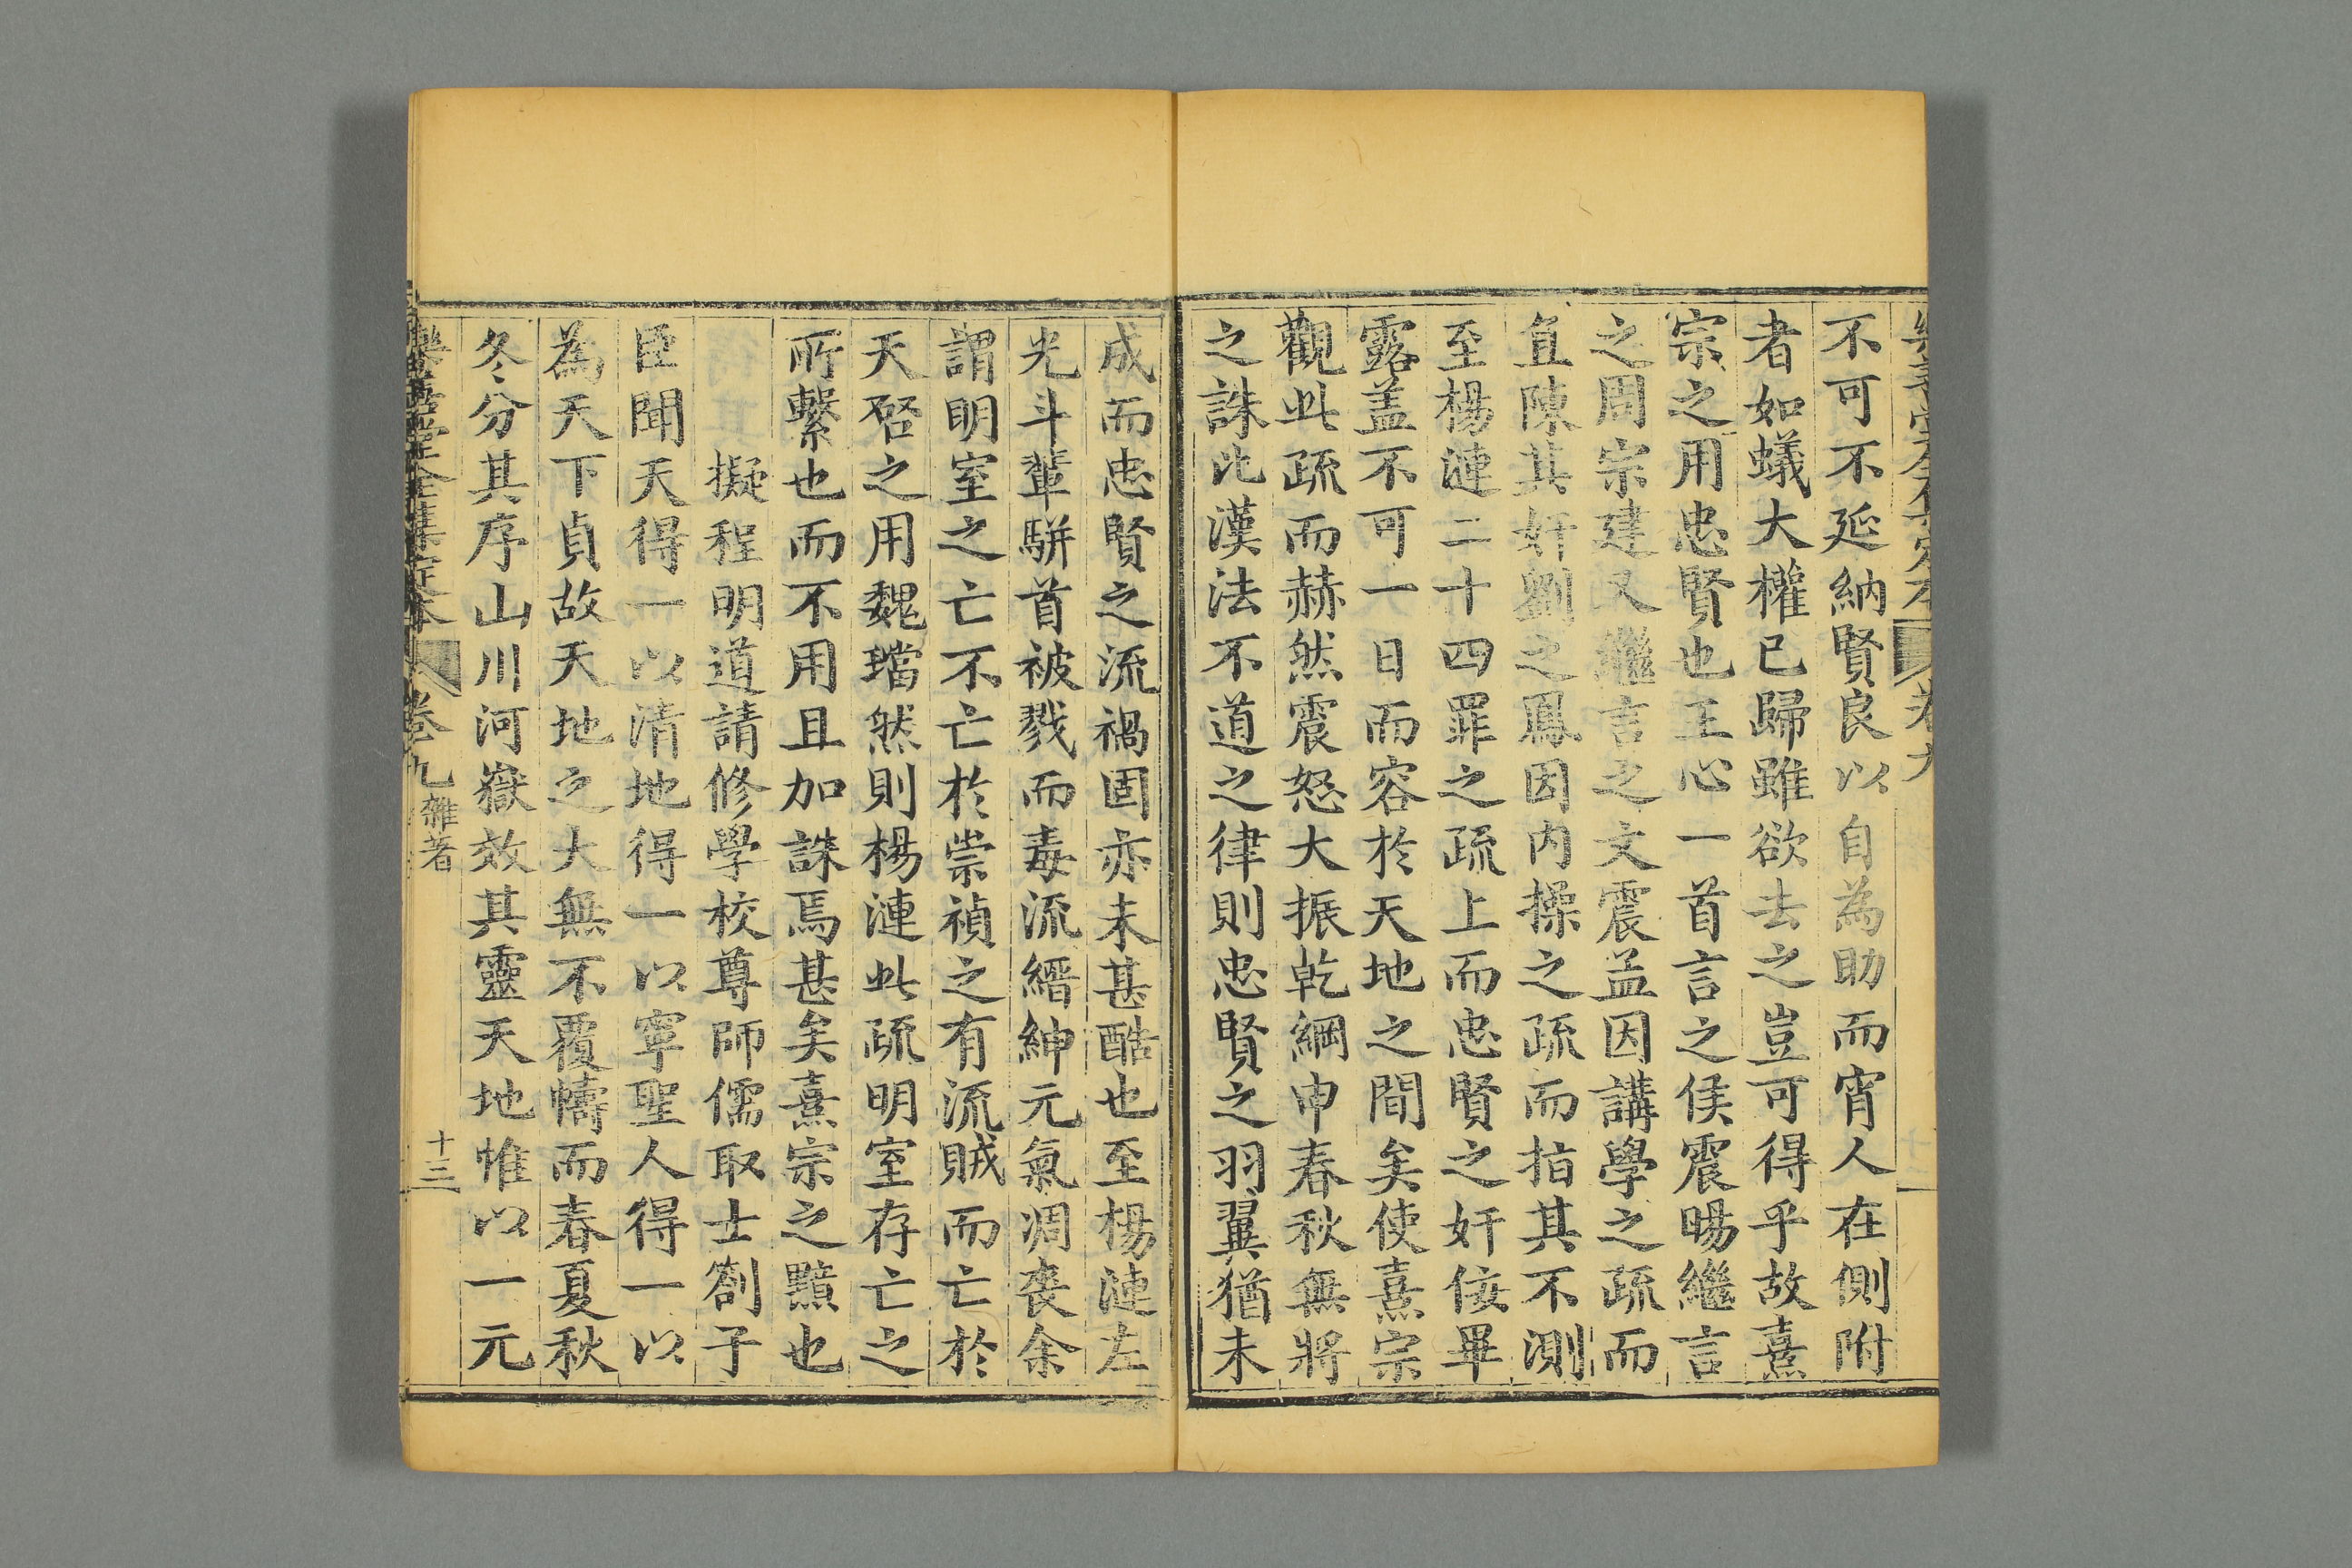 不可不延納賢良以自為助而宵人在側附
者如蟻大權已歸雖欲去之豈可得乎故熹
宗之用忠賢也王心一首言之侯震暘繼言
之周宗建又繼言之文震孟因講學之疏而
直陳其奸劉之鳳因内操之疏而指其不測
至楊漣二十四罪之疏上而忠賢之奸佞畢
露盖不可一日而容於天地之間矣使熹宗
觀此疏而赫然震怒大振乾綱申春秋無將
之誅比漢法不道之律則忠賢之羽翼猶未
成而忠賢之流禍固亦未甚酷也至楊漣左
光斗輩駢首被戮而毒流縉紳元氣凋喪余
謂明室之亡不亡於崇禎之有流賊而亡於
天啓之用魏璫然則楊漣此疏明室存亡之
所繫也而不用且加誅焉甚矣熹宗之黷也
擬程明道請修學校尊師儒取士劄子
臣聞天得一以清地得一以寧聖人得一以
為天下貞故天地之大無不覆幬而春夏秋
冬分其序山川河嶽效其靈天地惟以一元
樂善堂全集定本 卷九 雜著 十三